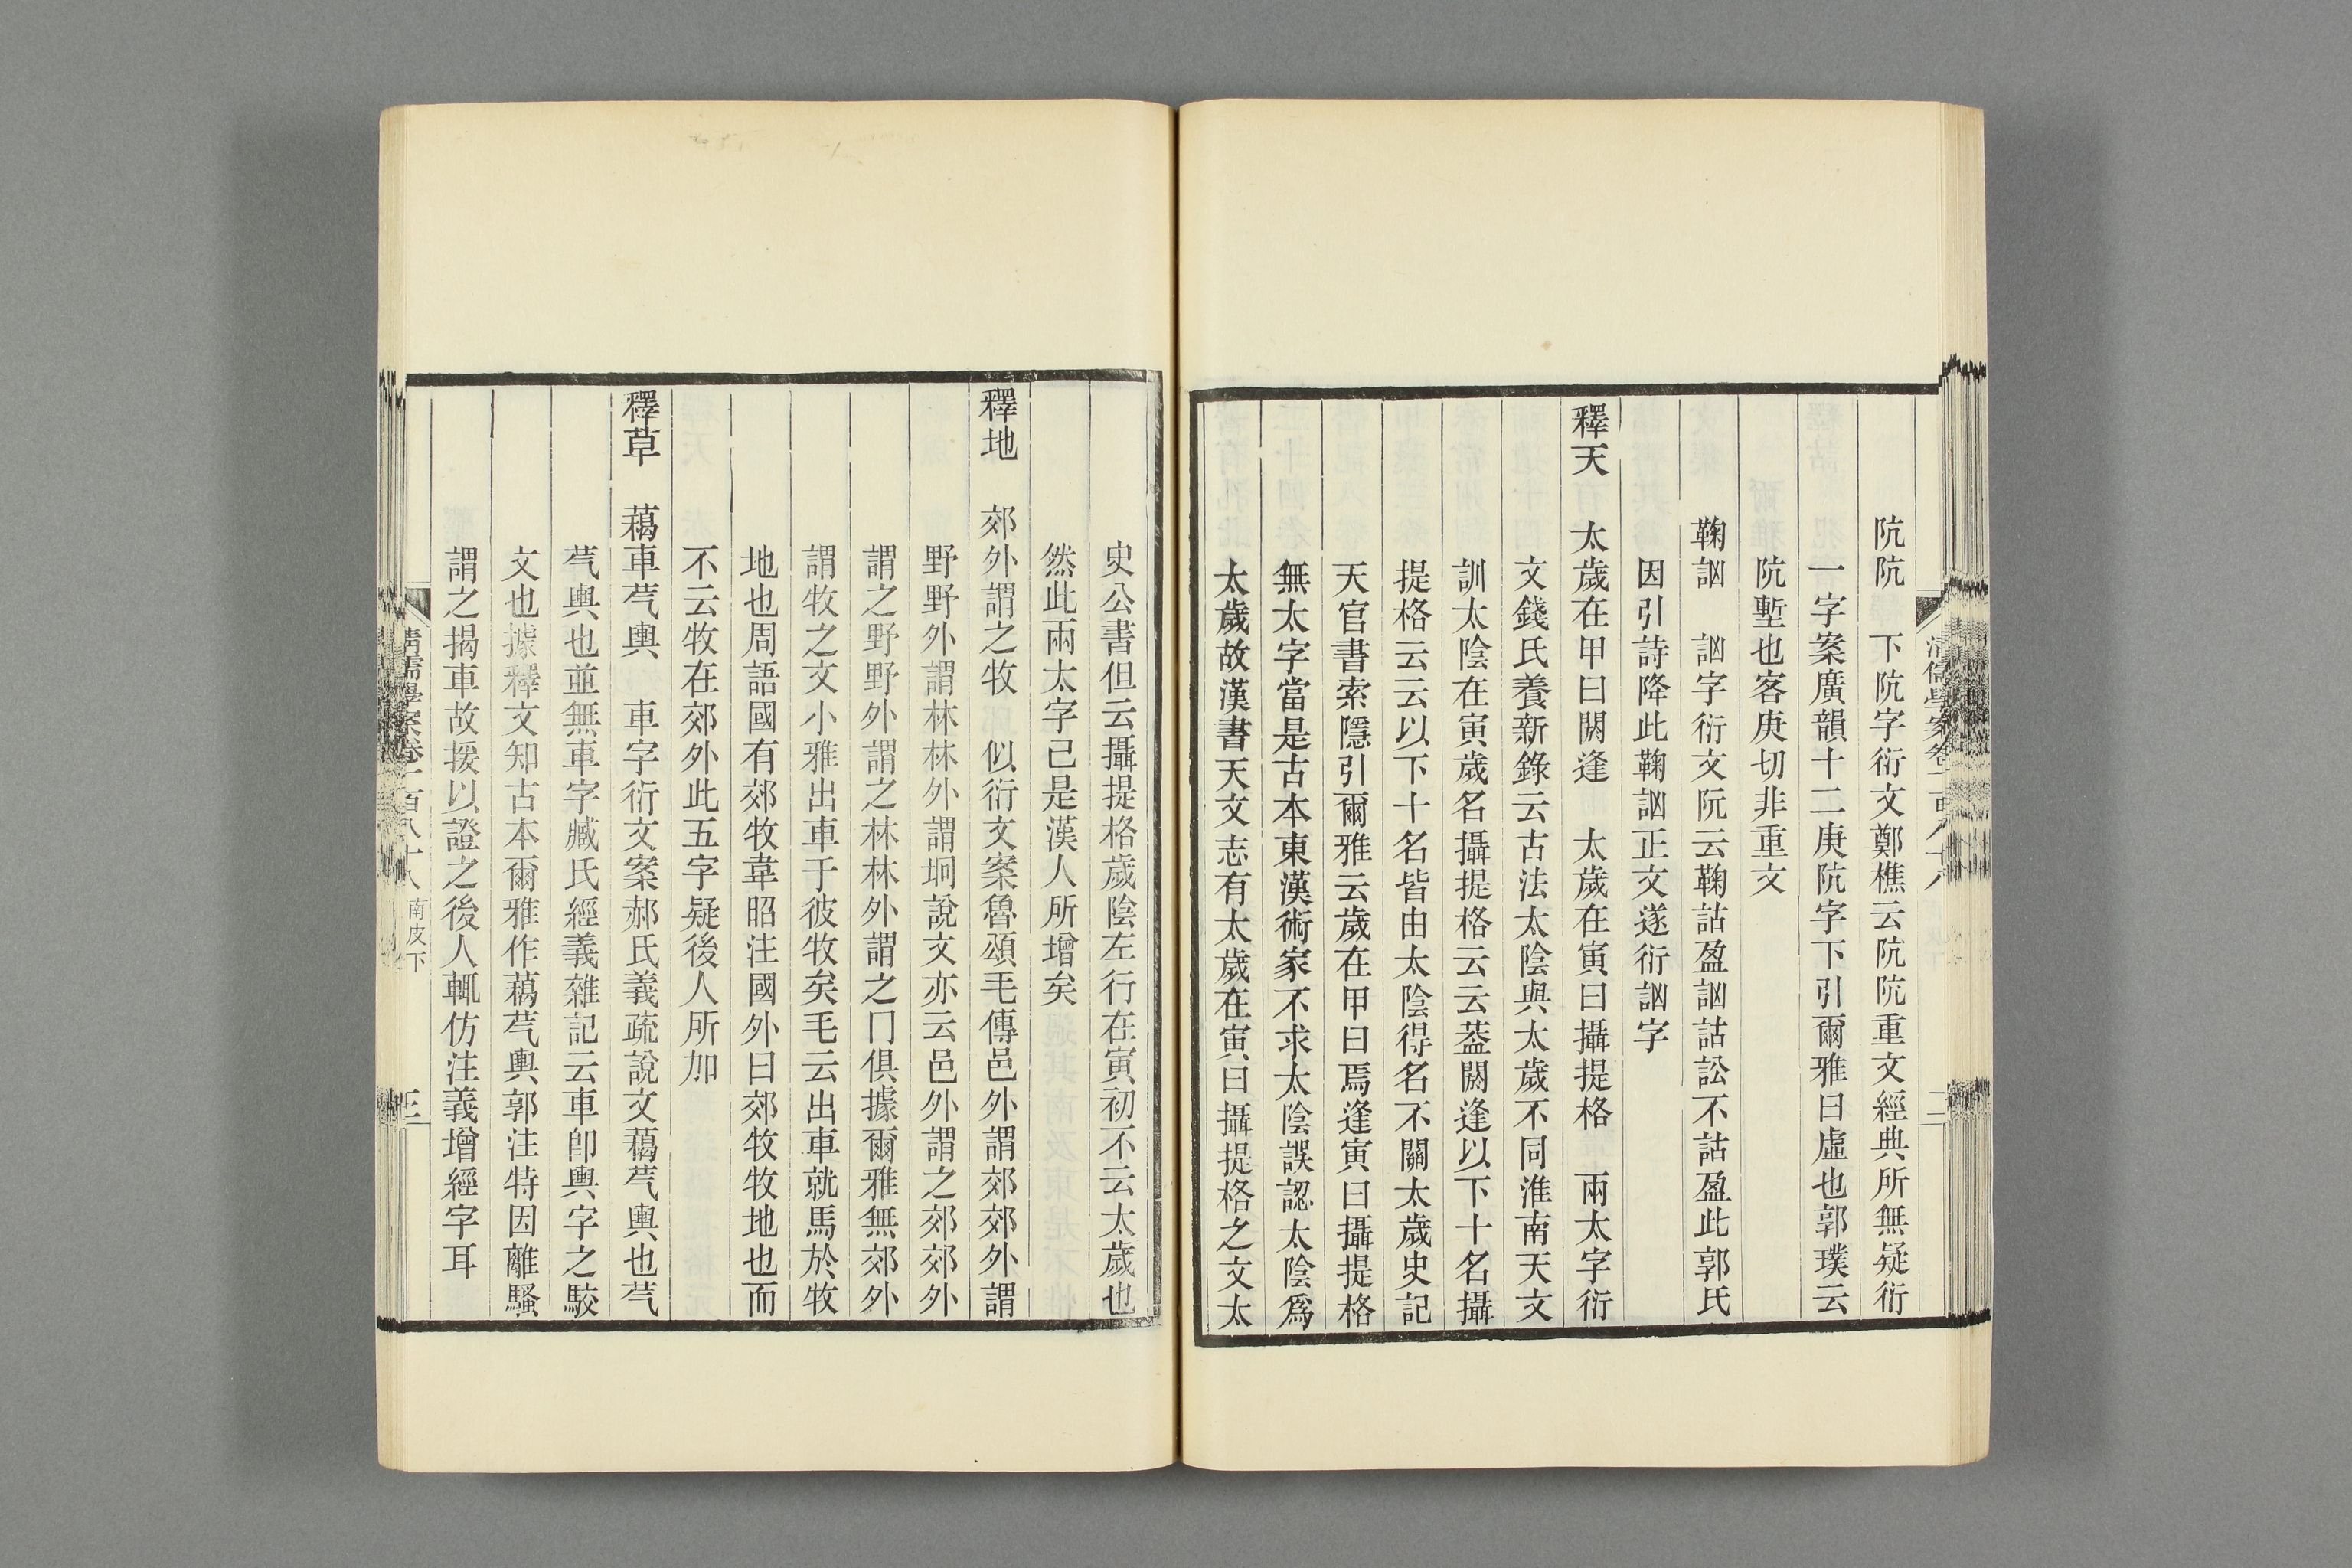 阬阬　下阬字衍文鄭樵云阬阬重文經典所無疑衍
一字案廣韻十二庚阬字下引爾雅曰虛也郭璞云
阬塹也客庚切非重文
鞠訩　訩字衍文阮云鞠詁盈訩詁訟不詁盈此郭氏
因引詩降此鞠訩正文遂衍訩字
釋天　太歲在甲曰閼逢　太歲在寅曰攝提格　兩太字衍
文錢氏養新錄云古法太陰與太歲不同淮南天文
訓太陰在寅歲名攝提格云云葢閼逢以下十名攝
提格云云以下十名皆由太陰得名不關太歲史記
天官書索隱引爾雅云歲在甲曰焉逢寅曰攝提格
無太字當是古本東漢術家不求太陰誤認太陰爲
太歲故漢書天文志有太歲在寅曰攝提格之文太
史公書但云攝提格歲陰左行在寅初不云太歲也
然此兩太字已是漢人所增矣
釋地　郊外謂之牧　似衍文案魯頌毛傳邑外謂郊郊外謂
野野外謂林林外謂坰說文亦云邑外謂之郊郊外
謂之野野外謂之林林外謂之冂俱據爾雅無郊外
謂牧之文小雅出車于彼牧矣毛云出車就馬於牧
地也周語國有郊牧韋昭注國外曰郊牧牧地也而
不云牧在郊外此五字疑後人所加
釋草　藒車芞輿　車字衍文案郝氏義疏說文藒芞輿也芞
芞輿也並無車字臧氏經義雜記云車卽輿字之駮
文也據釋文知古本爾雅作藒芞輿郭注特因離騷
謂之揭車故援以證之後人輒仿注義增經字耳
清儒學案卷一百八十八　南皮下　三